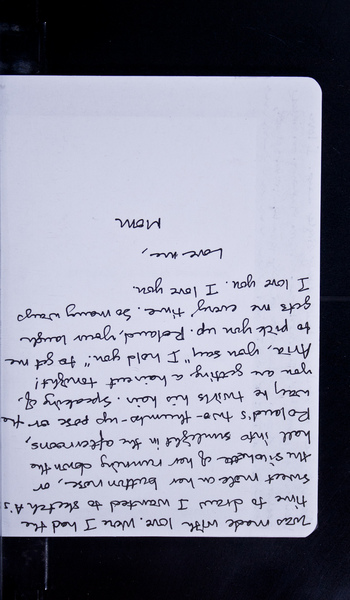 was made with love. Were I had the
time to draw I wanted to sketch A's
sweet mole on her button nose, or
the silohette of her running down the
hall into sunlight in the afternoons,
Roland's two-thumbs-up pose or the
way he twirls his hair. Speaking of,
you are getting a haircut tonight!
Aria, you say "I hold you." to get me
to pick you up. Roland, your laugh
gets me every time. So many ways
I love you. I love you.
Love me,
Mom